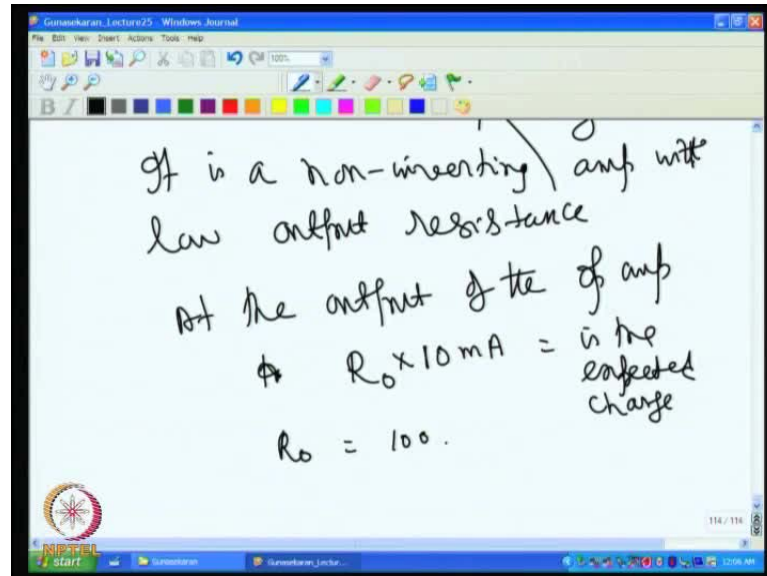 Gunasekaran_Lecture25 - Windows Journal
File Edit View Insert Actions Tools Help
100%
B I
It is a non-inverting amp with
low output resistance
At the output of the op amp
R₀ × 10 mA = is the
expected
change
R₀ = 100.
114 / 116
NPTEL
start Gunasekaran Gunasekaran_Lectur... 12:06 AM